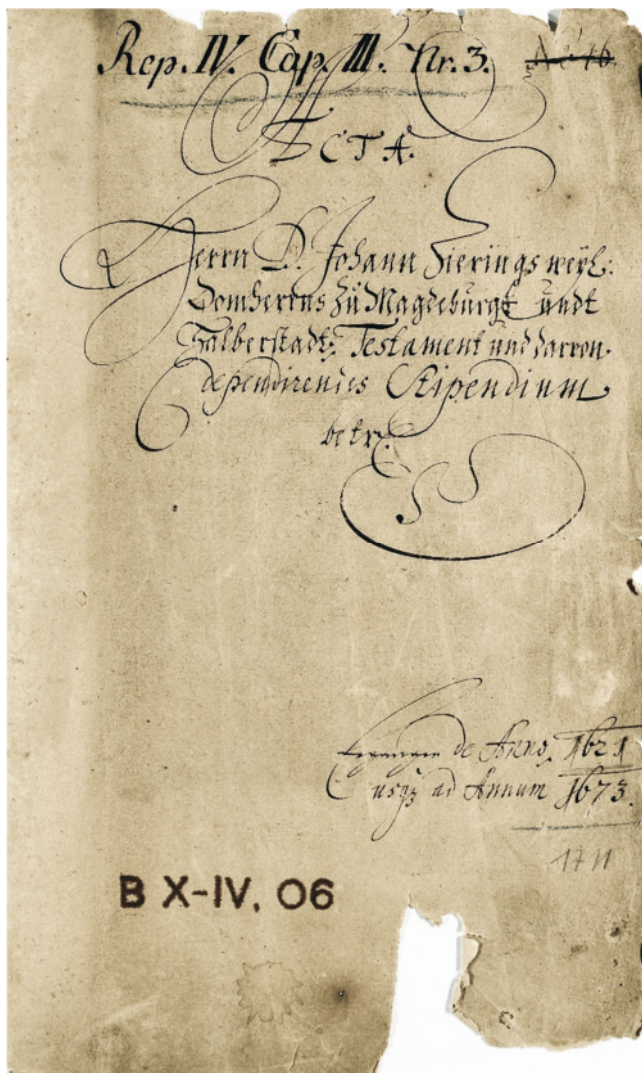 Rep. IV. Cap. III. Nr. 3. No 16.
ACTA.
Herrn D. Johann Zierings weyl:
Domherrns zu Magdeburgk undt
Halberstadt, Testament und darvon
dependirendes Stipendium
betr.
Ergangen de Anno, 1621
usqz ad Annum 1673.
1711
B X-IV, 06